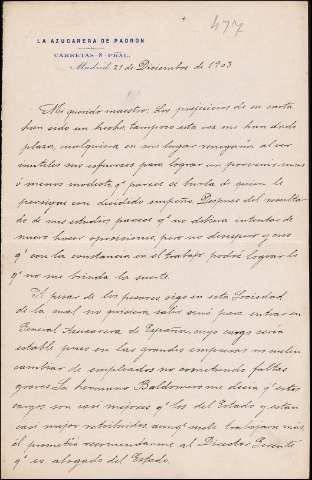 477
LA AZUCARERA DE PADRÓN
CARRETAS-8-PRAL.
Madrid, 21 de Diciembre de 1903
Mi querido maestro: Los prejuicios de su carta
han sido un hecho, tampoco esta vez me han dado
plaza, cualquiera en mi lugar renegaría al ver
inutiles sus esfuerzos para lograr un porvenir mas
ó menos modesto, qº parece se burla de quien le
persigue con decidido empeño. Despues del resulta-
do de mis estudios, parece qº no debiera intentar de
nuevo hacer oposiciones, pero no desespero y creo
qº con la constancia en el trabajo podré lograr lo
qº no me brinda la suerte.
A pesar de los pesares sigo en esta Sociedad
de la cual no quisiera salir sino para entrar en
General Azucarera de España, cuyo cargo seria
estable pues en las grandes empresas no suelen
cambiar de empleados no cometiendo faltas
graves. Su hermano Baldomero me decia qº estos
cargos son casi mejores qº los del Estado y estan
casi mejor retribuidos, aunqº suele trabajarse más
él prometió recomendarme al Director Gerente
qº es abogado del Estado.